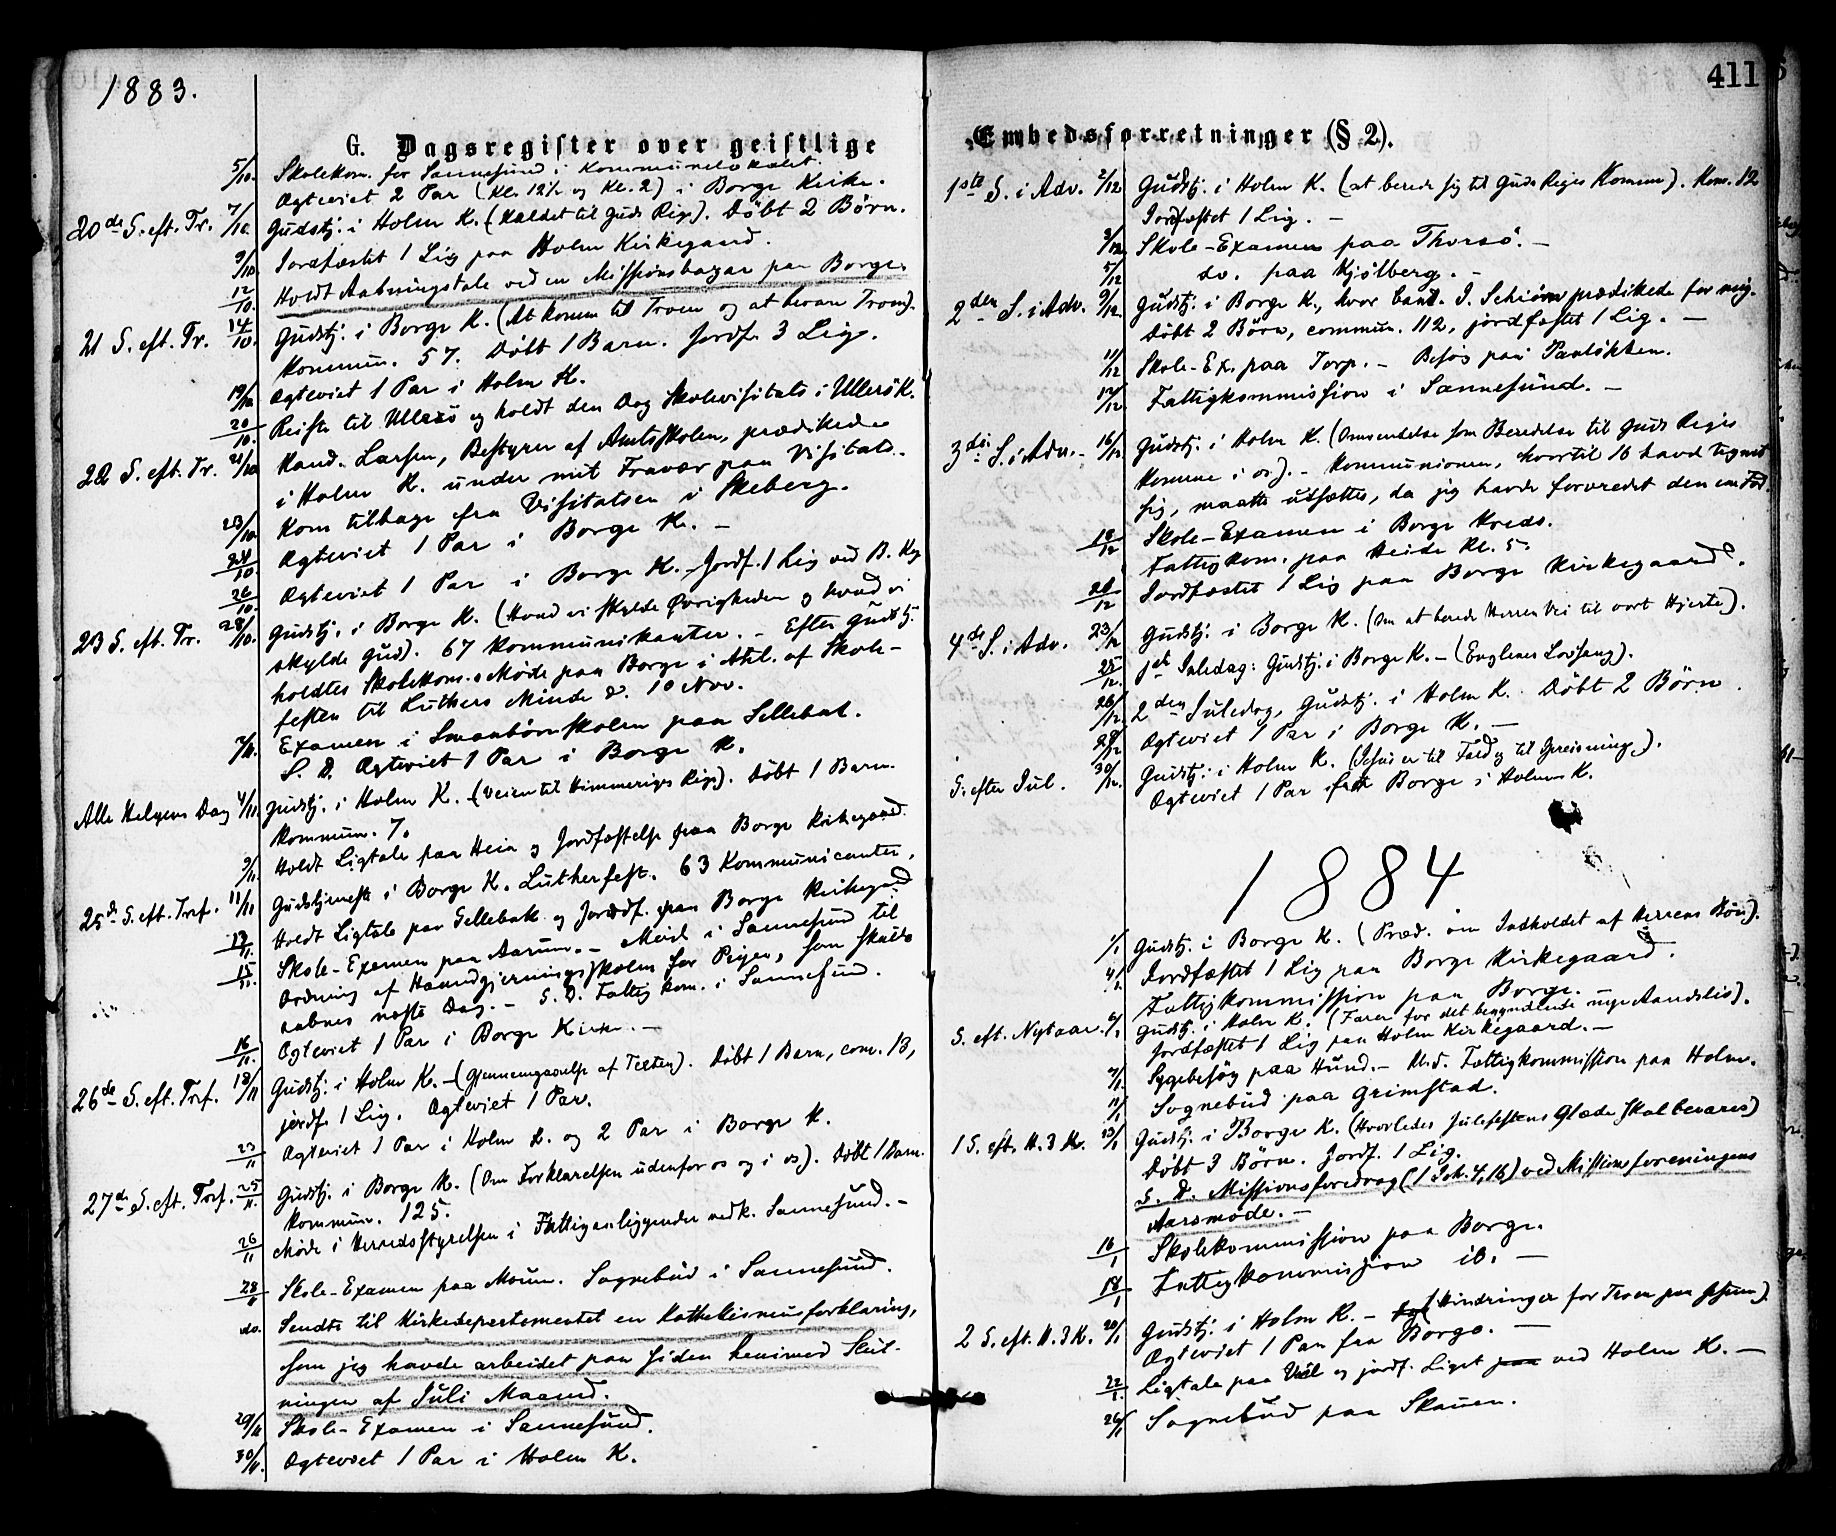 1883.
G. Dagsregister over geistlige
5/10. Skolekom. for Sannesund i Kommunelokalet.
Ægteviet 2 Par (Kl. 12½ og Kl. 2) i Borge Kirke.
20de S. eft. Tr. 7/10. Gudstj. i Holm K. (Kaldet til Guds Rige). Døbt 2 Børn.
9/10. Jordfæstet 1 Lig paa Holm Kirkegaard.
12/10. Holdt Aabningstale ved en Missionsbazar paa Borge.
21 S. eft. Tr. 14/10. Gudstj. i Borge K. (At komme til Troen og at bevare Troen).
Kommun. 57. Døbt 1 Barn. Jordf. 3 Lig.
19/10 Ægteviet 1 Par i Holm K.
20/10. Reiste til Ullerø og holdt den Dag Skolevisitats i Ullerø K.
22 S. eft. Tr. 21/10 Kand. Larsen, Bestyrer af Amtsskolen, prædikede
i Holm K. under mit Fravær paa Visitats.
23/10 Kom tilbage fra Visitatsen i Skeberg.
24/10. Ægteviet 1 Par i Borge K. –
26/10. Ægteviet 1 Par i Borge K. – Jordf. 1 Lig ved B. Kg
23 S. eft. Tr. 28/10. Gudstj. i Borge K. (Hvad vi skylde Øvrigheden og hvad vi
skylde Gud). 67 Kommunikanter. – Efter Gudstj.
holdtes Skolekom. Møde paa Borge i Anl. af Skole-
festen til Luthers Minde d. 10 Nov.
2/11. Examen i Smaabørnskolen paa Sellebak.
S. D. Ægteviet 1 Par i Borge K.
Alle Helgens Dag 4/11. Gudstj. i Holm K. (Veien til Himmeriges Rige). Døbt 1 Barn.
Kommun. 7.
9/11. Holdt Ligtale paa Heia og Jordfæstelse paa Borge Kirkegaard.
25de S. eft. Tref. 11/11 Gudstjeneste i Borge K. Lutherfest. 63 Kommunicanter,
13/11. Holdt Ligtale paa Sellebak og Jordf. paa Borge Kirkegaard
15/11. Skole-Examen paa Aarum. – Møde i Sannesund til
Ordning af Haandgjerningsskolen for Piger, som skulde
aabnes næste Dag. – S. D. Fattigkom. i Sannesund.
16/11. Ægteviet 1 Par i Borge Kirke. –
26de S. eft. Tref. 18/11 Gudstj. i Holm K. – (Gjennemgaaelse af Texten). Døbt 1 Barn, com. 13,
jordf. 1 Lig. Ægteviet 1 Par.
23/11 Ægteviet 1 Par i Holm K. og 2 Par i Borge K.
27de S. eft. Tref. 25/11. Gudstj. i Borge K. (Om Forklarelsen udenfor os og i os). Døbt 1 Barn.
Kommun. 125.
26/11 Møde i Herredsstyrelsen i Fattiganliggender vedk. Sannesund. –
28/11 Skole-Examen paa Moum. Sognebud i Sannesund.
do. Sendte til Kirkedepartementet en Kathekismusforklaring,
som jeg havde arbeidet paa siden henimod Slut-
ningen af Juli Maaned.
29/11 Skole-Examen i Sannesund.
30/11. Ægteviet 1 Par i Holm K.
411
Embedsforretninger (§ 2).
1ste S. i Adv. 2/12 Gudstj. i Holm K. (at berede sig til Guds Riges Komme). Kom. 12
Jordfæstet 1 Lig. –
3/12 Skole-Examen paa Thorsø. –
5/12 do. paa Kjølberg. –
2den S. i Adv. 9/12. Gudstj. i Borge K., hvor Cand. J. Schiørn prædikede for mig.
Døbt 2 Børn, commun. 112, jordfæstet 1 Lig. –
11/12 Skole-Ex. paa Torp. – Besøg paa
12/12. Fattigkommission i Sannesund. –
3die S. i Adv. – 16/12. Gudstj. i Holm K. (Omvendelse som Beredelse til Guds Riges
Komme i os). – Kommunionen, hvortil 16 havd tegnet
sig, maatte udsættes, da jeg havde forvredet den ene Fod.
18/12 Skole-Examen i Borge Kreds.
Fattigkom. paa Heide Kl. 5.
21/12 Jordfæstet 1 Lig paa Borge Kirkegaard.
4de S. i Adv. 23/12 Gudstj. i Borge K. (Om at berede Herren Vei til vort Hjerte).
25/12. 1ste Juledag: Gudstj. i Borge K. – (Englenes Lovsang).
26/12. 2den Juledag, Gudstj. i Holm K. Døbt 2 Børn.
28/12 Ægteviet 1 Par i Borge K. –
S. efter Jul. 30/12. Gudstj. i Holm K. (Jesus er til Fald og til Opreisning).
Ægteviet 1 Par fra Borge i Holms K.
1884
1/1 Gudstj. i Borge K. (Præd. om Indholdet af Herrens Bøn).
4/1 Jordfæstet 1 Lig paa Borge Kirkegaard.
Fattigkommission paa Borge.
S. eft. Nytaar. 6/1 Gudstj. i Holm K. (Farer for det begyndende nye Aandsliv).
Jordfæstet 1 Lig paa Holm Kirkegaard. –
7/1. Sygebesøg paa Hund. – Md. Fattigkommission paa Holm.
11/1 Sognebud paa Grimstad.
1 S. eft. H. 3 K. 13/1 Gudstj. i Borge K. (Hvorledes Julefestens Glæde skal bevares)
Døbt 3 Børn. Jordf. 1 Lig.
S. D. Missionsforedrag (1 Joh. 4, 16) ved Missionsforeningens
Aarsmøde. –
16/1 Skolekommission paa Borge.
18/1 Fattigkommission ib. –
2 S. eft. H. 3 K. 20/1 Gudstj. i Holm K. – (Hindringer for Troen paa Jesum).
Ægteviet 1 Par fra Borge. –
22/1. Ligtale paa og jordf. Liget paa ved Holm K. –
26/1 Sognebud paa Skauen.